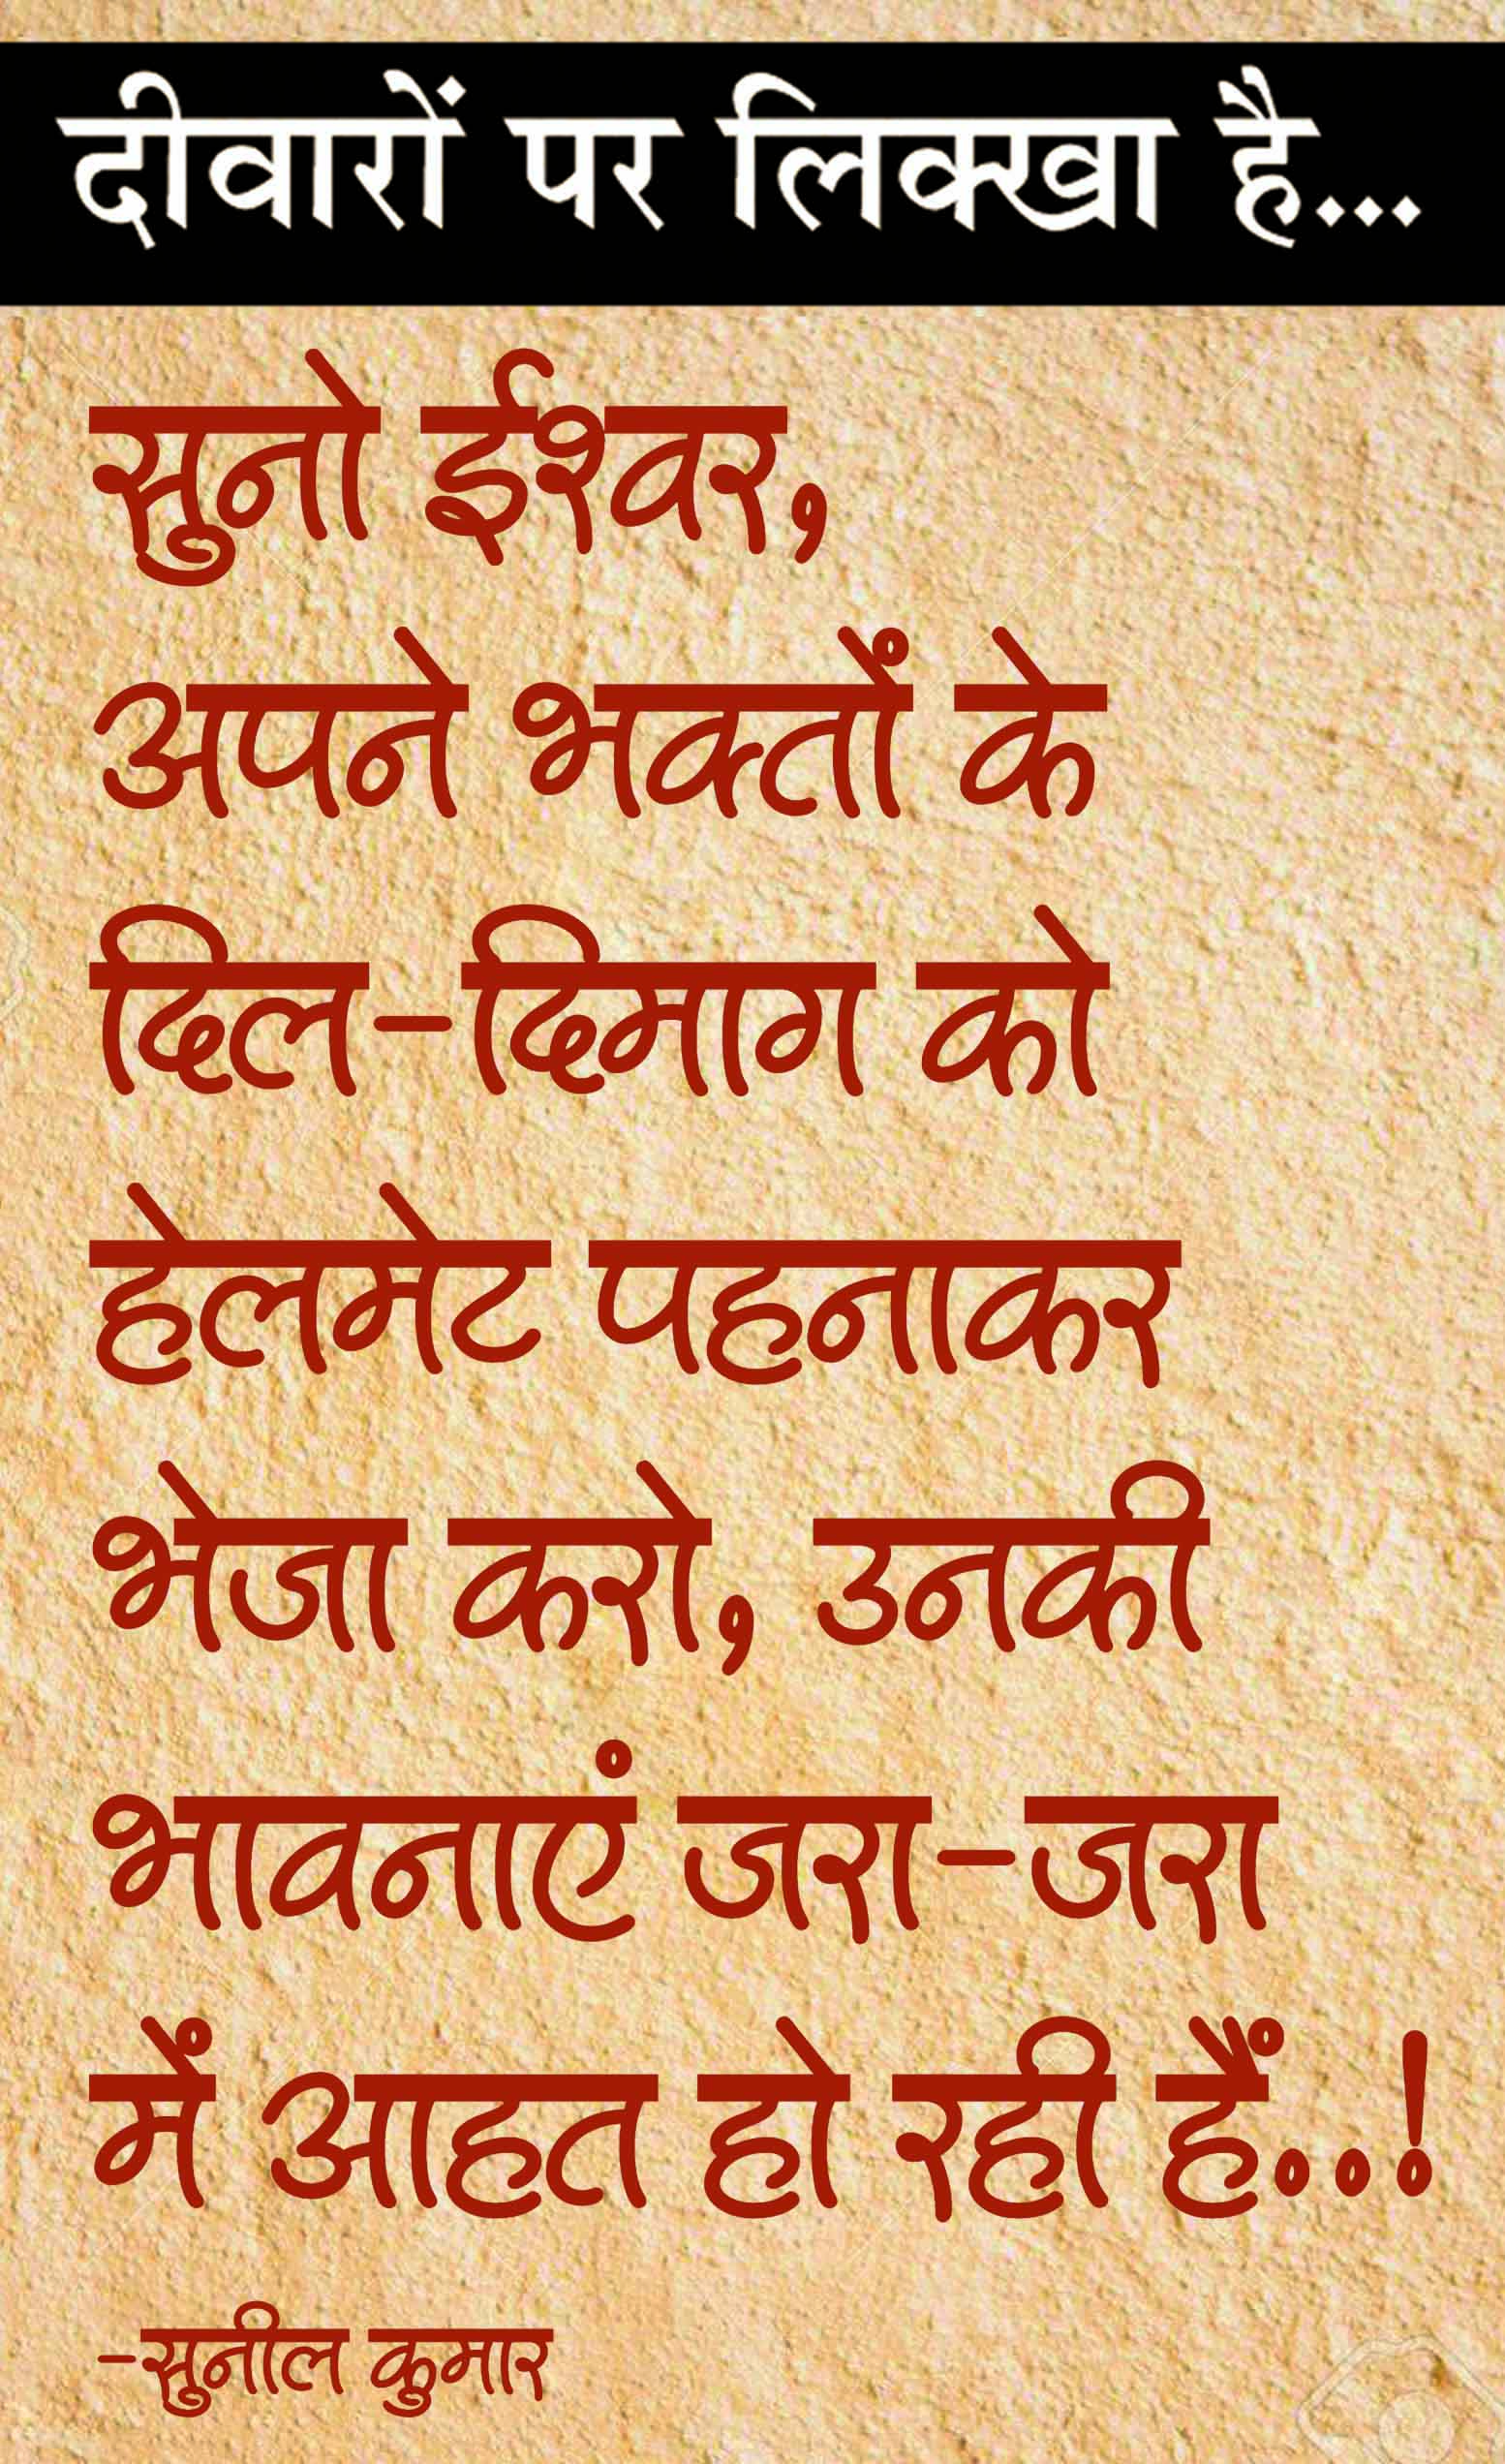 दीवारों पर लिक्खा है...
सुनो ईश्वर,
अपने भक्तों के
दिल-दिमाग को
हेलमेट पहनाकर
भेजा करो, उनकी
भावनाएं जरा-जरा
में आहत हो रही हैं..!
-सुनील कुमार